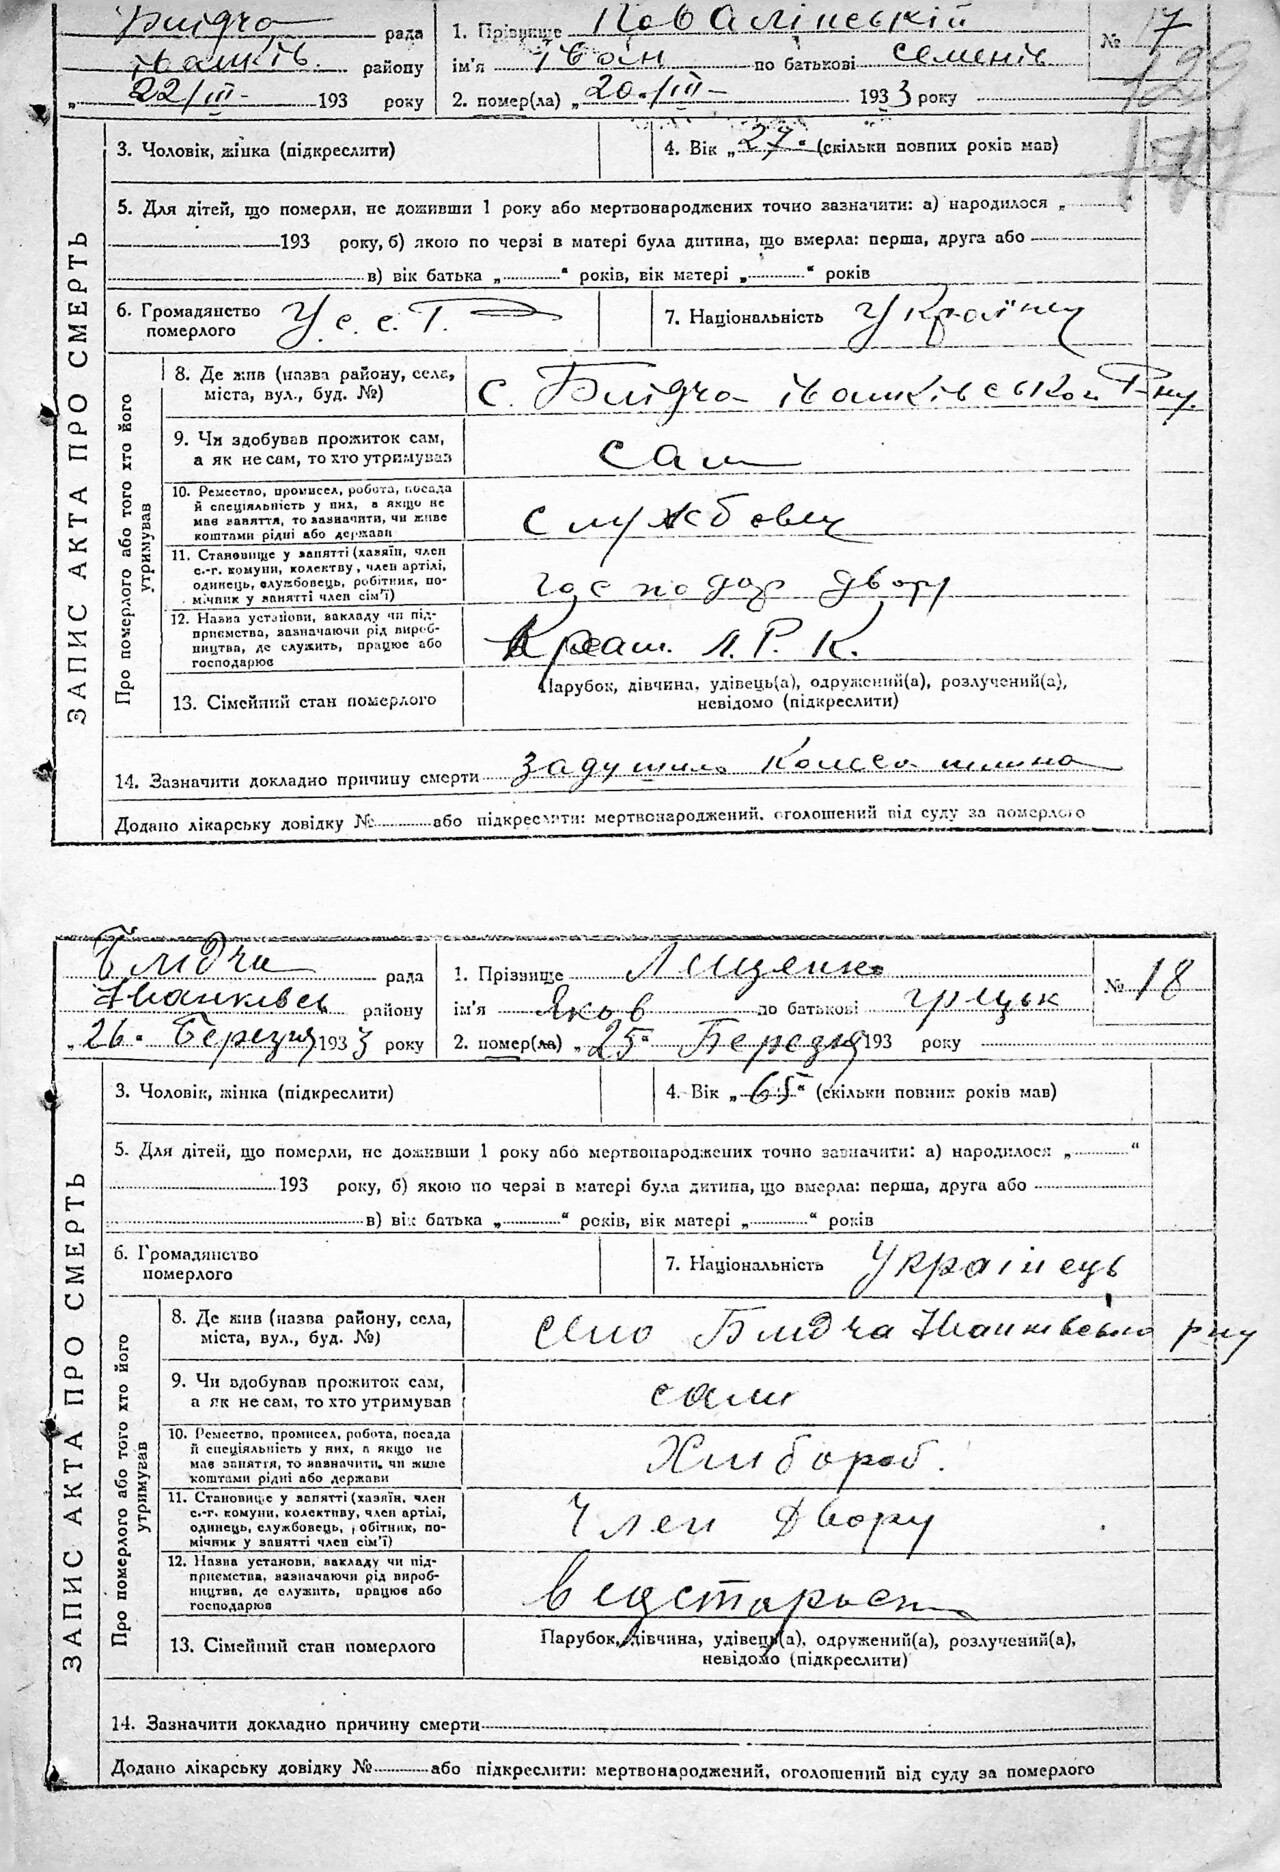 Блідча рада
Іванків. району
„ 22/III- 193 року
1. Прізвище Ковалінській
ім'я Іван по батькові Семенів
2. помер(ла) „ 20./III- 1933 року
№ 17
129
ЗАПИС АКТА ПРО СМЕРТЬ
3. Чоловік, жінка (підкреслити)
4. Вік „ 27. (скільки повних років мав)
5. Для дітей, що померли, не доживши 1 року або мертвонароджених точно зазначити: а) народилося „
193 року, б) якою по черзі в матері була дитина, що вмерла: перша, друга або
в) вік батька „ “ років, вік матері „ “ років
6. Громадянство
померлого
У.С.С.Р.
7. Національність Українец
Про померлого або того хто його
утримував
8. Де жив (назва району, села,
міста, вул., буд. №)
с. Блідча Іванківської Р-ну.
9. Чи здобував прожиток сам,
а як не сам, то хто утримував
сам
10. Ремество, промисел, робота, посада
й спеціяльність у них, а якщо не
має заняття, то зазначити, чи живе
коштами рідні або держави
службовец
11. Становище у занятті (хазяїн, член
с.-г. комуни, колективу, член артілі,
одинець, службовець, робітник, по-
мічник у занятті член сім'ї)
господар двору
12. Назва установи, закладу чи під-
приємства, зазначаючи рід вироб-
ництва, де служить, працює або
господарює
Л.Р.К.
13. Сімейний стан померлого
Парубок, дівчина, удівець(а), одружений(а), розлучений(а),
невідомо (підкреслити)
14. Зазначити докладно причину смерти задушила
Додано лікарську довідку № або підкреслити: мертвонароджений, оголошений від суду за померлого
Блидча рада
Иванківсь району
„ 26. Березня 1933 року
1. Прізвище Лещенко
ім'я Яков по батькові грецьк
2. помер(ла) „ 25. Березня 193 року
№ 18
ЗАПИС АКТА ПРО СМЕРТЬ
3. Чоловік, жінка (підкреслити)
4. Вік „ 65 “ (скільки повних років мав)
5. Для дітей, що померли, не доживши 1 року або мертвонароджених точно зазначити: а) народилося „ “
193 року, б) якою по черзі в матері була дитина, що вмерла: перша, друга або
в) вік батька „ “ років, вік матері „ “ років
6. Громадянство
померлого
7. Національність Украінець
Про померлого або того хто його
утримував
8. Де жив (назва району, села,
міста, вул., буд. №)
село Блидча Иванківсько рну
9. Чи здобував прожиток сам,
а як не сам, то хто утримував
сам
10. Ремество, промисел, робота, посада
й спеціяльність у них, а якщо не
має заняття, то зазначити, чи живе
коштами рідні або держави
Хлибороб.
11. Становище у занятті (хазяїн, член
с.-г. комуни, колективу, член артілі,
одинець, службовець, робітник, по-
мічник у занятті член сім'ї)
Член Двору
12. Назва установи, закладу чи під-
приємства, зазначаючи рід вироб-
ництва, де служить, працює або
господарює
13. Сімейний стан померлого
Парубок, дівчина, удівець(а), одружений(а), розлучений(а),
невідомо (підкреслити)
14. Зазначити докладно причину смерти
Додано лікарську довідку № або підкреслити: мертвонароджений, оголошений від суду за померлого